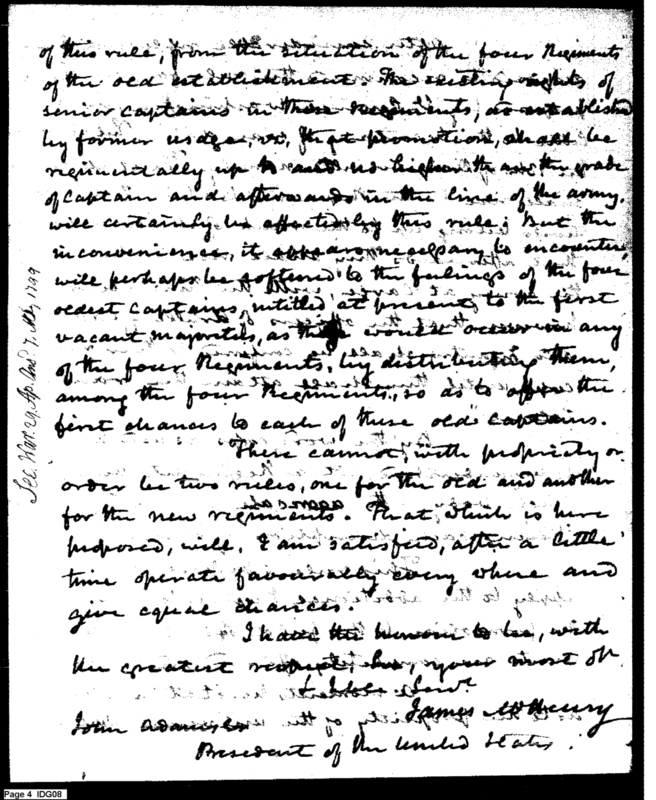 of this rule, from the situation of the four Regiments
of the old establishment. The existing rights of
senior captains in these regiments, as established
by former usage, viz, that promotion, shall be
regimentally up to and no higher than the grade
of Captain and afterwards in the line of the army,
will certainly be affected by this rule; But the
inconvenience, it appears necessary to encounter,
will perhaps be softened to the feelings of the four
oldest Captains, intitled at present to the first
vacant majorities, as they would occur in any
of the four Regiments, by distributing them,
among the four Regiments, so as to offer the
first chances to each of these old captains.
There cannot, with propriety or
order be two rules, one for the old and another
for the new regiments. That, which is here
proposed, will, I am satisfied, after a little
time operate favourably every where and
give equal chances.
I have the honour to be, with
the greatest respect, Sir, your most ob.
& Hble Servt.
James McHenry
John Adams
President of the United States.
Sec. War. 29. Ap. Ansd. 7. May 1799
Page 4 IDG08